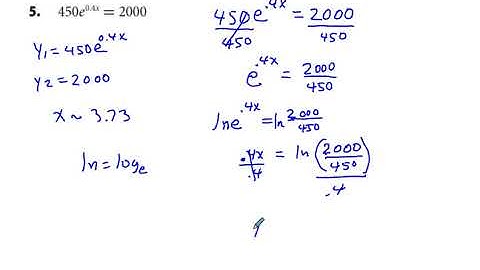 5. 450e^{0.4x} = 2000
y₁ = 450e^{0.4x}
y₂ = 2000
x ~ 3.73
ln = log_e
450e^{.4x}/450 = 2000/450
e^{.4x} = 2000/450
ln e^{.4x} = ln 2000/450
.4x/.4 = ln(2000/450)/.4